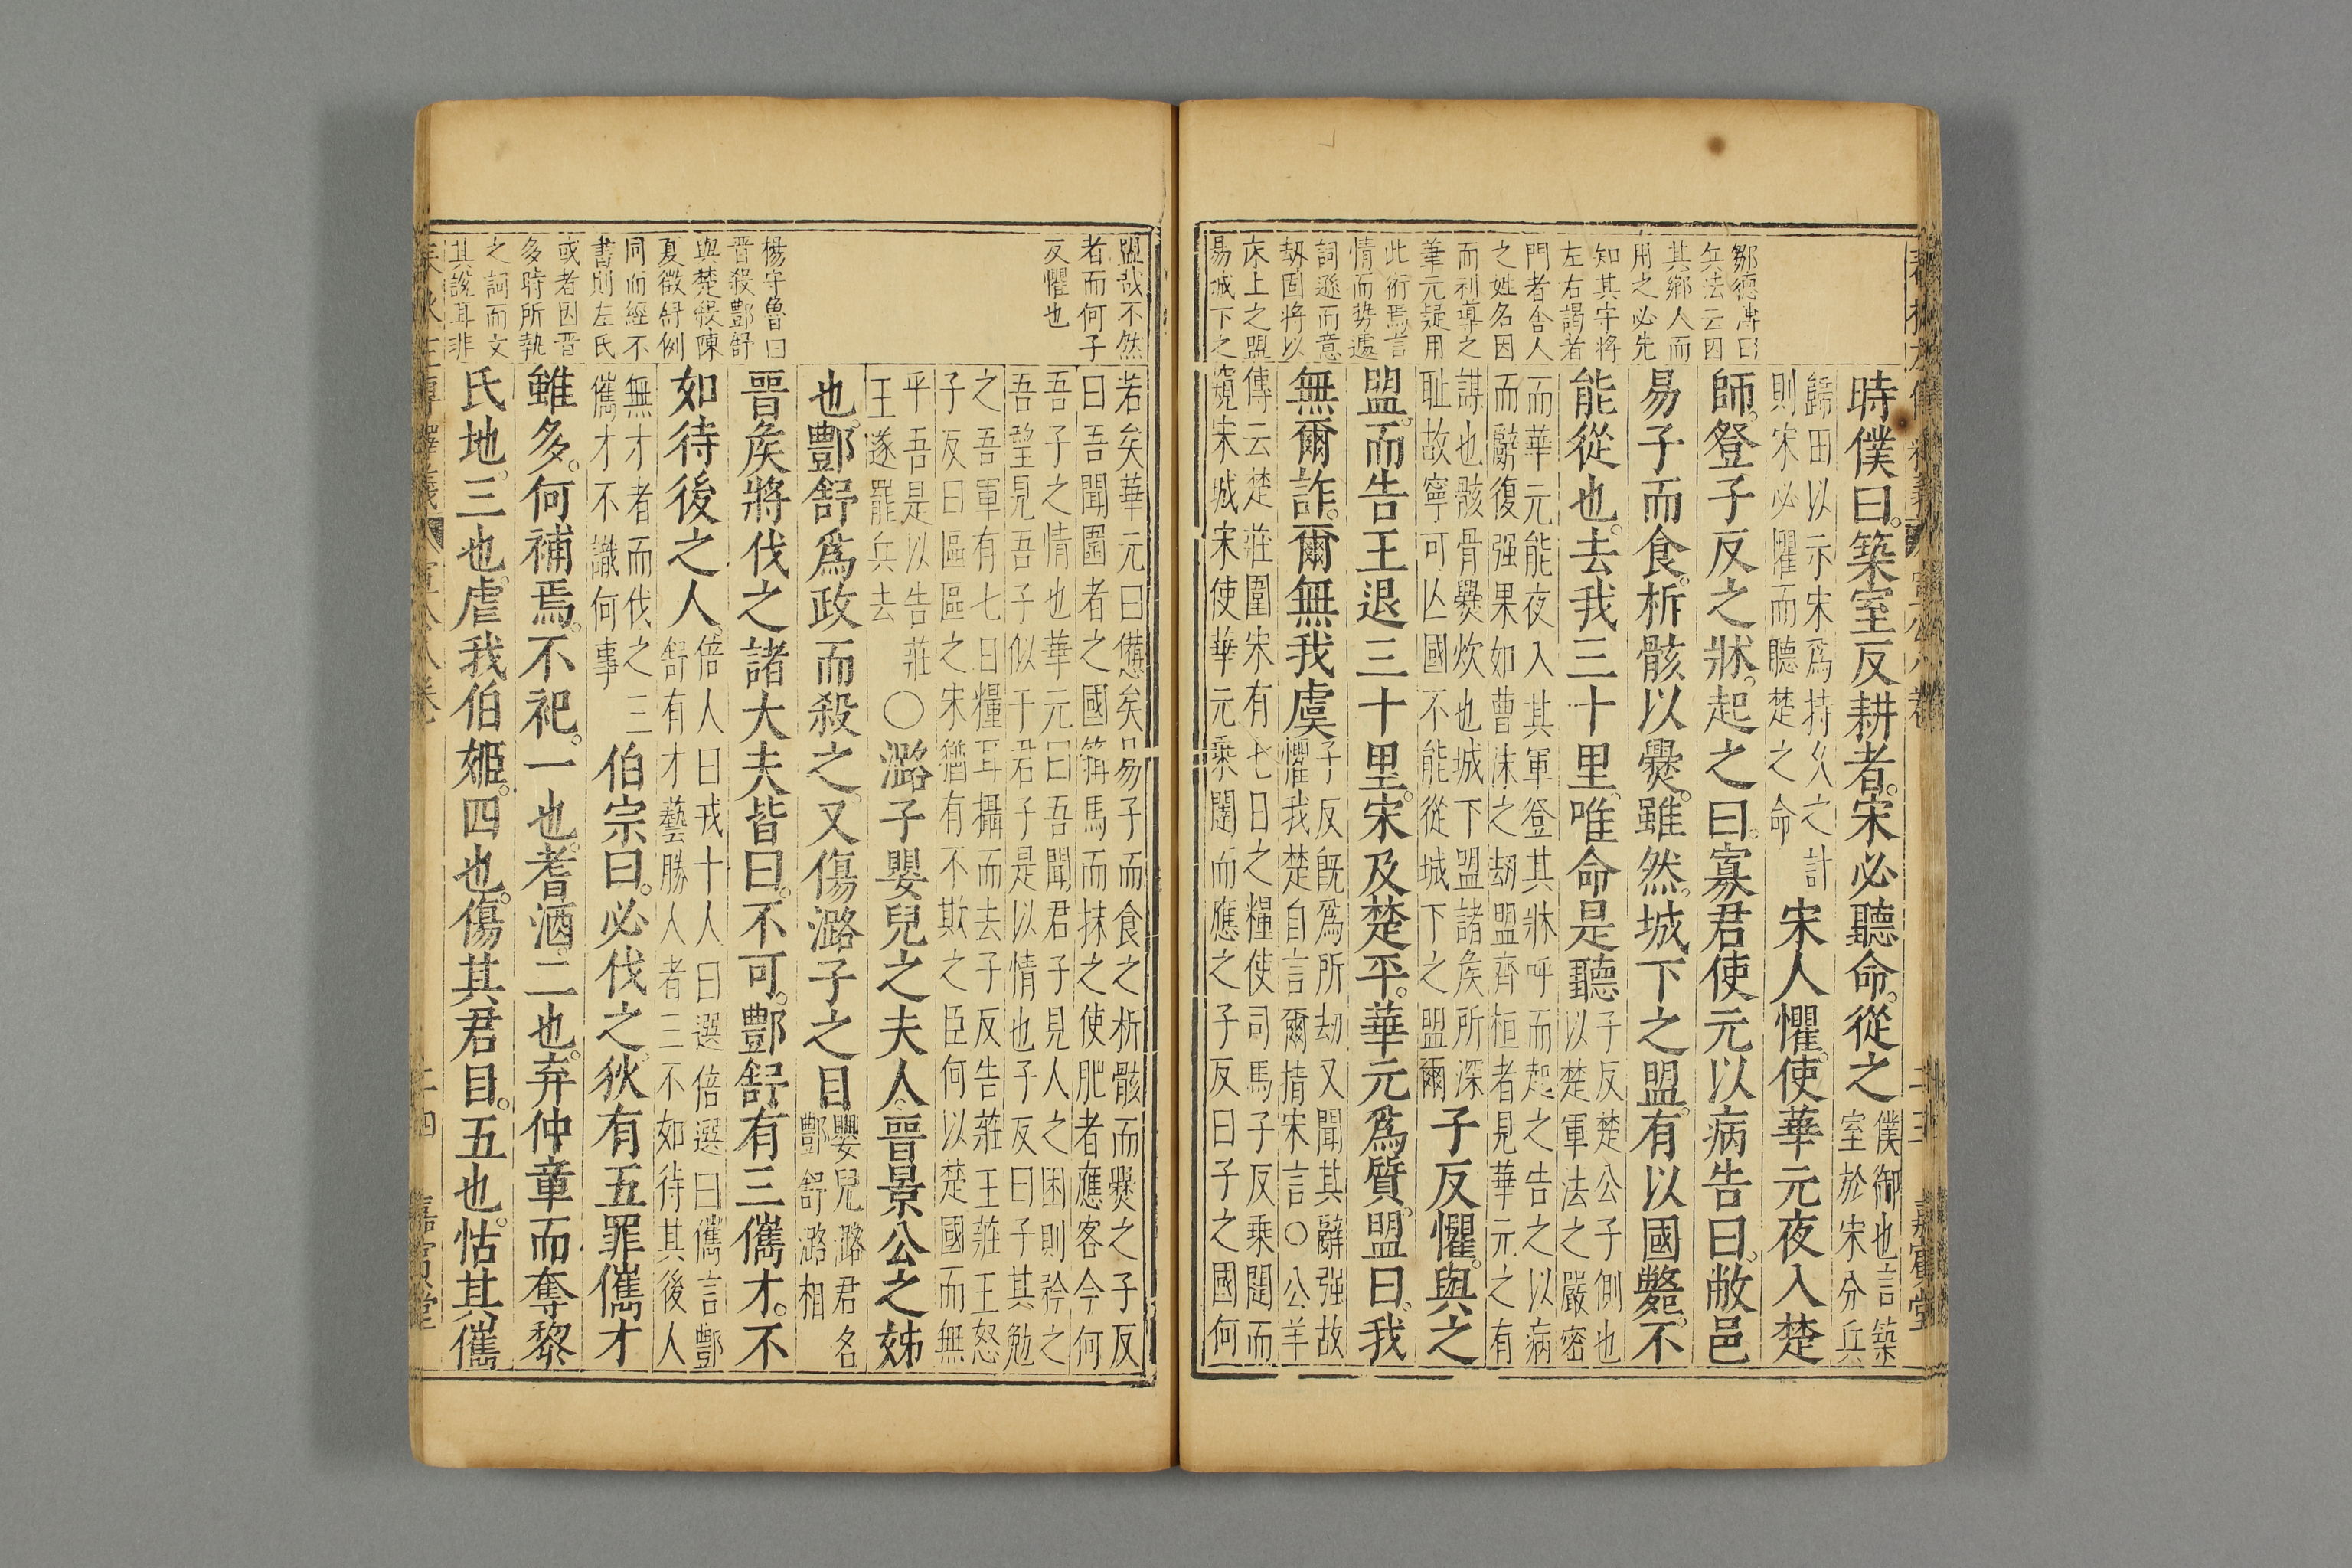 鄒德溥曰
兵法云因
其鄉人而
用之必先
知其守將
左右謁者
門者舍人
之姓名因
而利導之
華元疑用
此術焉言
情而勢遜
詞遜而意
刼固將以
床上之盟
易城下之
時僕曰築室反耕者宋必聽命從之
僕御也言築
室於宋分兵
歸田以示宋爲持久之計
則宋必懼而聽楚之命
宋人懼使華元夜入楚
師登子反之牀起之曰寡君使元以病告曰敝邑
易子而食析骸以爨雖然城下之盟有以國斃不
能從也去我三十里唯命是聽
子反楚公子側也
以楚軍法之嚴密
而華元能夜入其軍登其牀呼而起之告之以病
而辭復强果如曹沫之刼盟齊桓者見華元之有
謀也骸骨爨炊也城下盟諸矦所深
耻故寧可亾國不能從城下之盟爾
子反懼與之
盟而告王退三十里宋及楚平華元爲質盟曰我
無爾詐爾無我虞
子反旣爲所刼又聞其辭强故
懼我楚自言爾情宋言〇公羊
傳云楚莊圍宋有七日之糧使司馬子反乘闉而
窺宋城宋使華元乘闉而應之子反曰子之國何
盟哉不然
者而何子
反懼也
楊守魯曰
晋殺酆舒
與楚殺陳
夏徵舒例
同而經不
書則左氏
或者因晋
多時所執
之詞而文
其說耳非
若矣華元曰憊矣易子而食之析骸而爨之子反
曰吾聞圍者之國箝馬而抹之使肥者應客今何
吾子之情也華元曰吾聞君子見人之困則矜之
吾望見吾子似于君子是以情也子反曰子其勉
之吾軍有七日糧耳攝而去子反告莊王莊王怒
子反曰區區之宋猶有不欺之臣何以楚國而無
平吾是以告莊
王遂罷兵去
〇潞子嬰兒之夫人晉景公之姊
也酆舒爲政而殺之又傷潞子之目
嬰兒潞君名
酆舒潞相
晉矦將伐之諸大夫皆曰不可酆舒有三儁才不
如待後之人
倍人曰戎十人曰選倍選曰儁言酆
舒有才藝勝人者三不如待其後人
無才者而伐之三
儁才不識何事
伯宗曰必伐之狄有五罪儁才
雖多何補焉不祀一也耆酒二也弃仲章而奪黎
氏地三也虐我伯姬四也傷其君目五也怙其儁
二十四
嘉賓堂